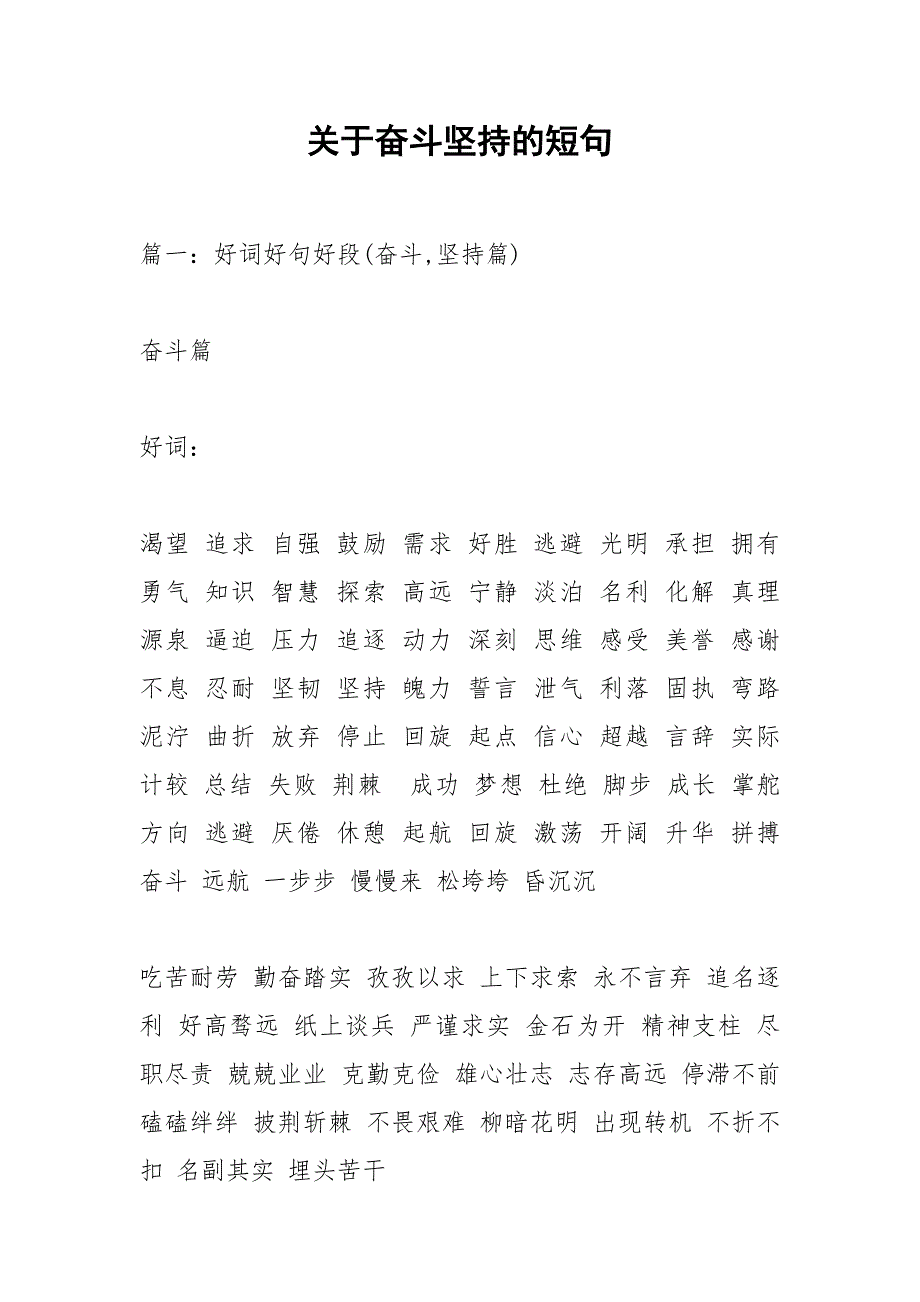 关于奋斗坚持的短句
篇一：好词好句好段(奋斗,坚持篇)
奋斗篇
好词：
渴望 追求 自强 鼓励 需求 好胜 逃避 光明 承担 拥有
勇气 知识 智慧 探索 高远 宁静 淡泊 名利 化解 真理
源泉 逼迫 压力 追逐 动力 深刻 思维 感受 美誉 感谢
不息 忍耐 坚韧 坚持 魄力 誓言 泄气 利落 固执 弯路
泥泞 曲折 放弃 停止 回旋 起点 信心 超越 言辞 实际
计较 总结 失败 荆棘 成功 梦想 杜绝 脚步 成长 掌舵
方向 逃避 厌倦 休憩 起航 回旋 激荡 开阔 升华 拼搏
奋斗 远航 一步步 慢慢来 松垮垮 昏沉沉
吃苦耐劳 勤奋踏实 孜孜以求 上下求索 永不言弃 追名逐
利 好高骛远 纸上谈兵 严谨求实 金石为开 精神支柱 尽
职尽责 兢兢业业 克勤克俭 雄心壮志 志存高远 停滞不前
磕磕绊绊 披荆斩棘 不畏艰难 柳暗花明 出现转机 不折不
扣 名副其实 埋头苦干